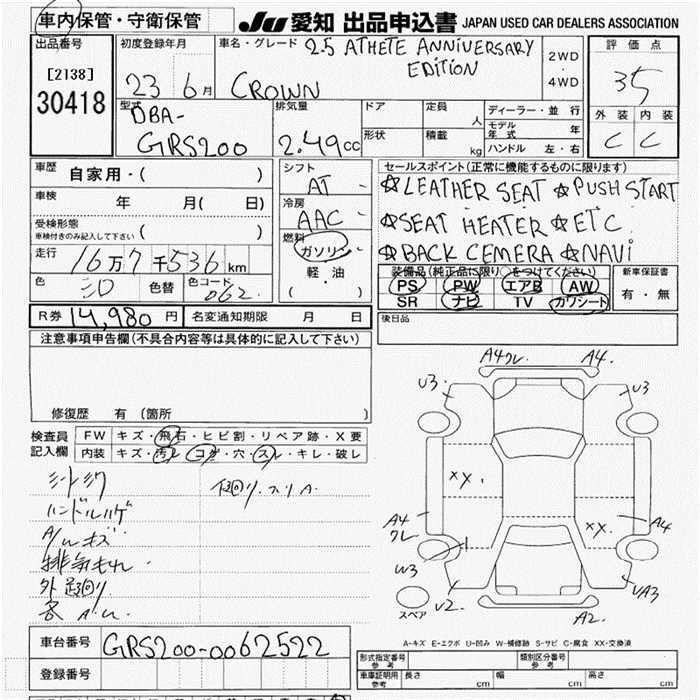 車内保管・守衛保管
JU 愛知 出品申込書 JAPAN USED CAR DEALERS ASSOCIATION
出品番号
[2138]
30418
初度登録年月
23 6月
車名・グレード 2.5 ATHETE ANNIVERSARY
EDITION
CROWN
2WD
・
4WD
評価点
3.5
外装 内装
C C
型式
DBA-
GRS200
排気量
2.49cc
ドア
定員
人
形状
積載
kg
ディーラー・並行
モデル
年式 年
ハンドル 左・右
車歴 自家用・( )
車検 年 月( 日)
受検形態
車検付きのみ記入して下さい ( )
走行 16万7千536km
色 シロ 色替 色コード 062.
シフト
AT -
冷房
AAC -
燃料
ガソリン
軽・油
( ・ )
セールスポイント(正常に機能するものに限ります)
☆LEATHER SEAT ☆PUSH START
☆SEAT HEATER ☆ETC
☆BACK CEMERA ☆NAVi
装備品(純正品に限り○をつけてください)
PS PW エアB AW
SR ナビ TV カワシート
新車保証書
有・無
R券 14,980円 名変通知期限 月 日
後日品
注意事項申告欄(不具合内容等は具体的に記入して下さい)
修復歴 有 (箇所 )
検査員
記入欄
FW キズ・飛石・ヒビ割・リペア跡・X要
内装 キズ・汚レ・コゲ・穴・スレ・キレ・破レ
シートシワ
ハンドルハゲ
A/Wキズ
排気もれ
外 足廻り
下廻り.スリA.
A4クレ A4.
U3. U3
XX.
XX.
A4
クレ
A4
W3
U2.
UA3
A2.
スペア
A-キズ E-エクボ U-凹み W-補修跡 S-サビ C-腐食 XX-交換済
車台番号 GRS200-0062522
登録番号
形式指定番号
参考
類別区分番号
参考
車庫証明用
参考
長さ cm 幅 cm 高さ cm